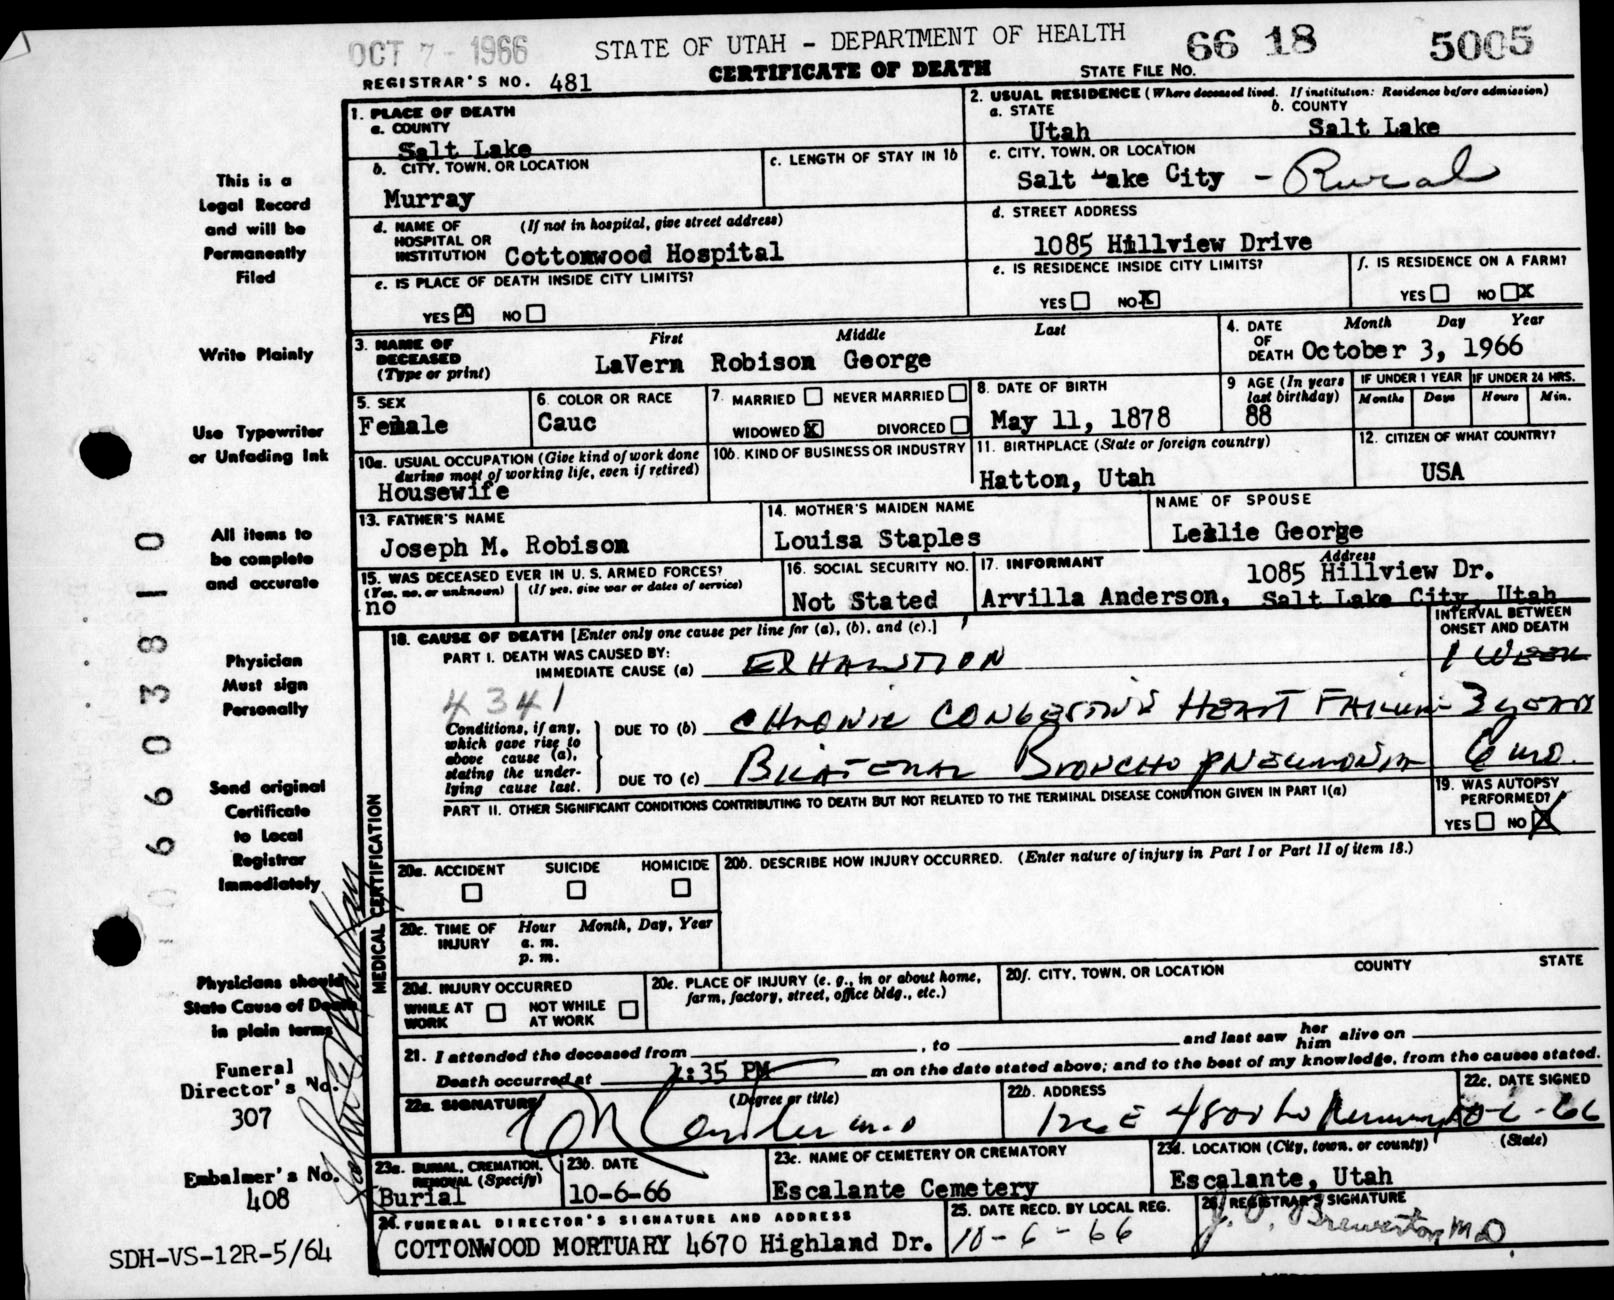 OCT 7 - 1966
STATE OF UTAH - DEPARTMENT OF HEALTH
66 18 5005
CERTIFICATE OF DEATH
STATE FILE NO.
REGISTRAR'S NO. 481
1. PLACE OF DEATH
a. COUNTY
Salt Lake
2. USUAL RESIDENCE (Where deceased lived. If institution: Residence before admission)
a. STATE
Utah
b. COUNTY
Salt Lake
b. CITY, TOWN, OR LOCATION
Murray
c. LENGTH OF STAY IN 1b
c. CITY, TOWN, OR LOCATION
Salt Lake City - Rural
d. NAME OF HOSPITAL OR INSTITUTION (If not in hospital, give street address)
Cottonwood Hospital
d. STREET ADDRESS
1085 Hillview Drive
e. IS PLACE OF DEATH INSIDE CITY LIMITS?
YES X NO
e. IS RESIDENCE INSIDE CITY LIMITS?
YES NO X
f. IS RESIDENCE ON A FARM?
YES NO X
3. NAME OF DECEASED (Type or print)
First Middle Last
LaVern Robison George
4. DATE OF DEATH
Month Day Year
October 3, 1966
5. SEX
Female
6. COLOR OR RACE
Cauc
7. MARRIED NEVER MARRIED
WIDOWED X DIVORCED
8. DATE OF BIRTH
May 11, 1878
9 AGE (In years last birthday)
88
IF UNDER 1 YEAR
Months Days
IF UNDER 24 HRS.
Hours Min.
10a. USUAL OCCUPATION (Give kind of work done during most of working life, even if retired)
Housewife
10b. KIND OF BUSINESS OR INDUSTRY
11. BIRTHPLACE (State or foreign country)
Hatton, Utah
12. CITIZEN OF WHAT COUNTRY?
USA
13. FATHER'S NAME
Joseph M. Robison
14. MOTHER'S MAIDEN NAME
Louisa Staples
NAME OF SPOUSE
Leslie George
15. WAS DECEASED EVER IN U. S. ARMED FORCES?
(Yes, no, or unknown) (If yes, give war or dates of service)
no
16. SOCIAL SECURITY NO.
Not Stated
17. INFORMANT Address
Arvilla Anderson, 1085 Hillview Dr.
Salt Lake City, Utah
18. CAUSE OF DEATH [Enter only one cause per line for (a), (b), and (c).]
INTERVAL BETWEEN ONSET AND DEATH
PART I. DEATH WAS CAUSED BY:
IMMEDIATE CAUSE (a) EXHAUSTION 1 WEEK
4341
Conditions, if any, which gave rise to above cause (a), stating the underlying cause last.
DUE TO (b) CHRONIC CONGESTIVE HEART FAILURE 3 YEARS
DUE TO (c) BILATERAL BRONCHO PNEUMONIA 6 MO.
PART II. OTHER SIGNIFICANT CONDITIONS CONTRIBUTING TO DEATH BUT NOT RELATED TO THE TERMINAL DISEASE CONDITION GIVEN IN PART I(a)
19. WAS AUTOPSY PERFORMED?
YES NO X
MEDICAL CERTIFICATION
20a. ACCIDENT SUICIDE HOMICIDE
20b. DESCRIBE HOW INJURY OCCURRED. (Enter nature of injury in Part I or Part II of item 18.)
20c. TIME OF INJURY Hour Month, Day, Year
a. m.
p. m.
20d. INJURY OCCURRED
WHILE AT WORK NOT WHILE AT WORK
20e. PLACE OF INJURY (e. g., in or about home, farm, factory, street, office bldg., etc.)
20f. CITY, TOWN, OR LOCATION COUNTY STATE
21. I attended the deceased from , to and last saw her him alive on
Death occurred at :35 PM m on the date stated above; and to the best of my knowledge, from the causes stated.
22a. SIGNATURE (Degree or title)
M.D
22b. ADDRESS
22c. DATE SIGNED
23a. BURIAL, CREMATION, REMOVAL (Specify)
Burial
23b. DATE
10-6-66
23c. NAME OF CEMETERY OR CREMATORY
Escalante Cemetery
23d. LOCATION (City, town, or county) (State)
Escalante, Utah
24. FUNERAL DIRECTOR'S SIGNATURE AND ADDRESS
COTTONWOOD MORTUARY 4670 Highland Dr.
25. DATE RECD. BY LOCAL REG.
10-6-66
26. REGISTRAR'S SIGNATURE
M D
This is a
Legal Record
and will be
Permanently
Filed
Write Plainly
Use Typewriter
or Unfading Ink
All items to
be complete
and accurate
Physician
Must sign
Personally
Send original
Certificate
to Local
Registrar
Immediately
Physicians should
State Cause of Death
in plain terms
Funeral
Director's No.
307
Embalmer's No.
408
SDH-VS-12R-5/64